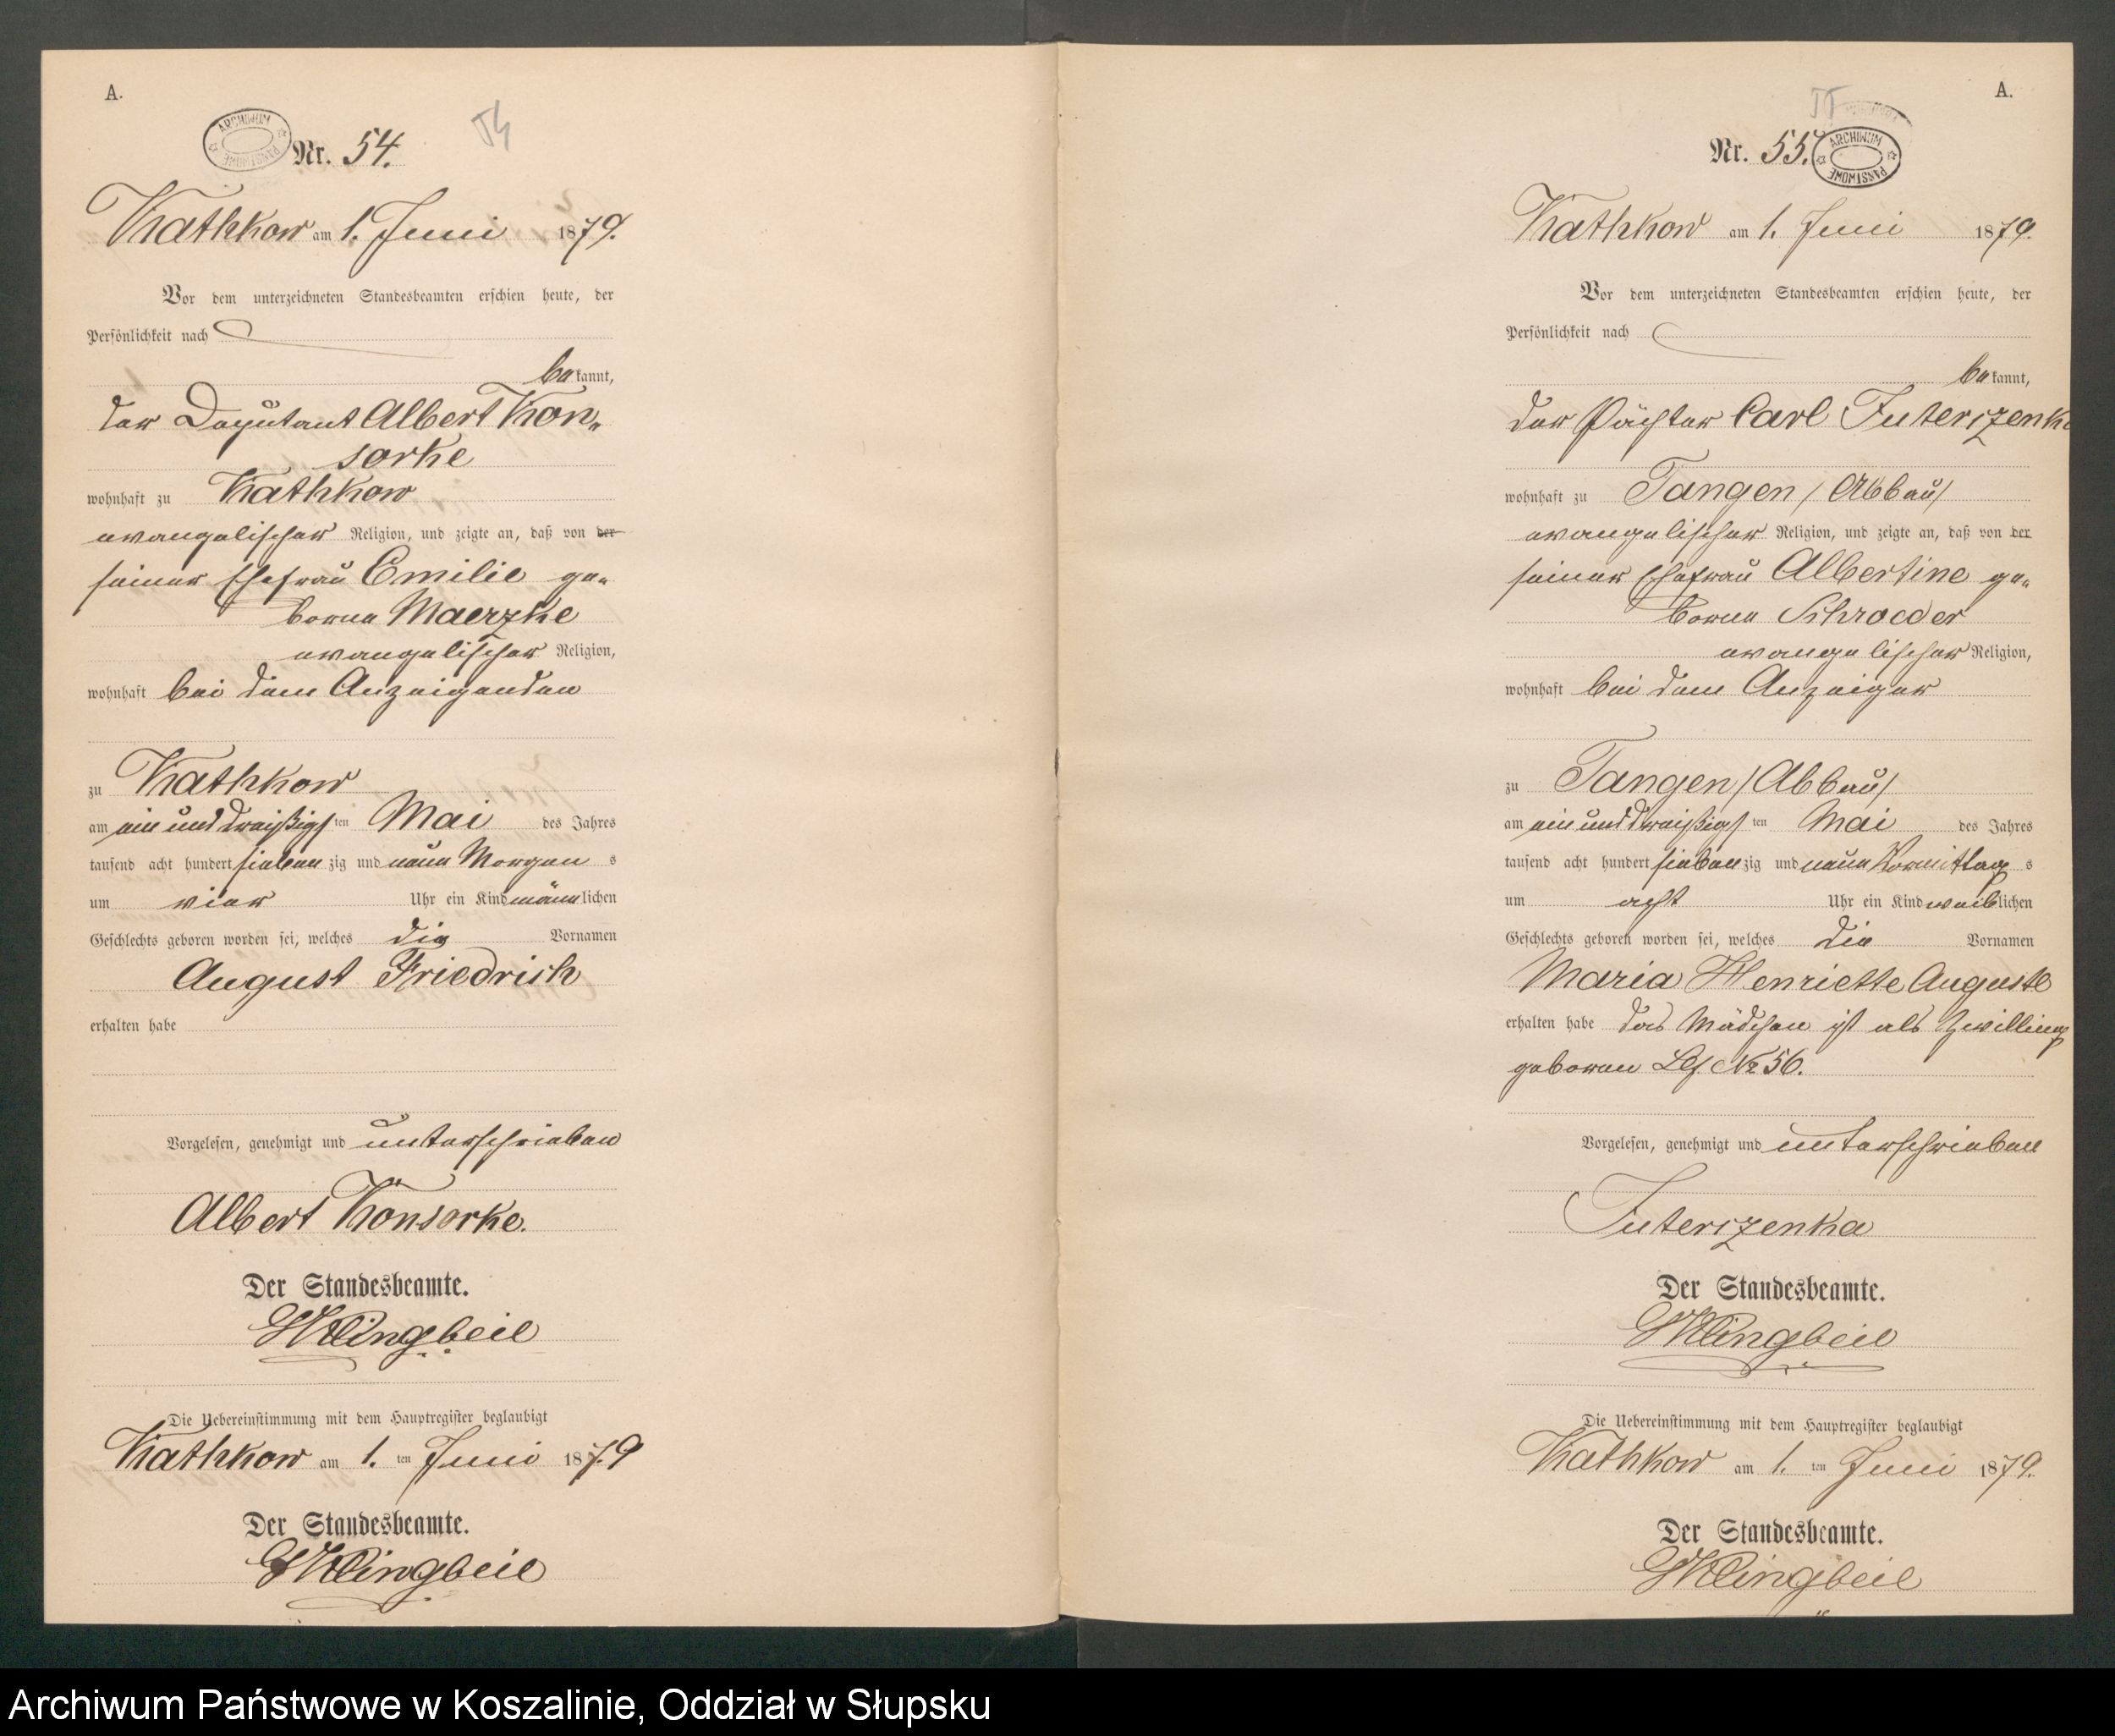 A.
ARCHIWUM PAŃSTWOWE
Nr. 54.
54
Kathkow am 1. Juni 1879.
Vor dem unterzeichneten Standesbeamten erschien heute, der
Persönlichkeit nach
bekannt,
der Deputant Albert Kon„
sorke
wohnhaft zu Kathkow
evangelischer Religion, und zeigte an, daß von der
seiner Ehefrau Emilie ge„
borne Maerzke
evangelischer Religion,
wohnhaft bei dem Anzeigenden
zu Kathkow
am ein und dreißigsten Mai des Jahres
tausend acht hundert siebenzig und neun Morgens
um vier Uhr ein Kind männlichen
Geschlechts geboren worden sei, welches die Vornamen
August Friedrich
erhalten habe
Vorgelesen, genehmigt und unterschrieben
Albert Konsorke.
Der Standesbeamte.
Klingbeil
Die Uebereinstimmung mit dem Hauptregister beglaubigt
Kathkow am 1. ten Juni 1879
Der Standesbeamte.
Klingbeil
A.
55
Nr. 55.
ARCHIWUM PAŃSTWOWE
Kathkow am 1. Juni 1879.
Vor dem unterzeichneten Standesbeamten erschien heute, der
Persönlichkeit nach
bekannt,
der Pächter Carl Futerszenka
wohnhaft zu Tangen /Abbau/
evangelischer Religion, und zeigte an, daß von der
seiner Ehefrau Albertine ge„
borne Schroeder
evangelischer Religion,
wohnhaft bei dem Anzeiger
zu Tangen /Abbau/
am ein und dreißigsten Mai des Jahres
tausend acht hundert siebenzig und neun Vormittags
um acht Uhr ein Kind weiblichen
Geschlechts geboren worden sei, welches die Vornamen
Maria Henriette Auguste
erhalten habe das Mädchen ist als Zwilling
geboren № 56.
Vorgelesen, genehmigt und unterschrieben
Futerszenka
Der Standesbeamte.
Klingbeil
Die Uebereinstimmung mit dem Hauptregister beglaubigt
Kathkow am 1. ten Juni 1879.
Der Standesbeamte.
Klingbeil
Archiwum Państwowe w Koszalinie, Oddział w Słupsku